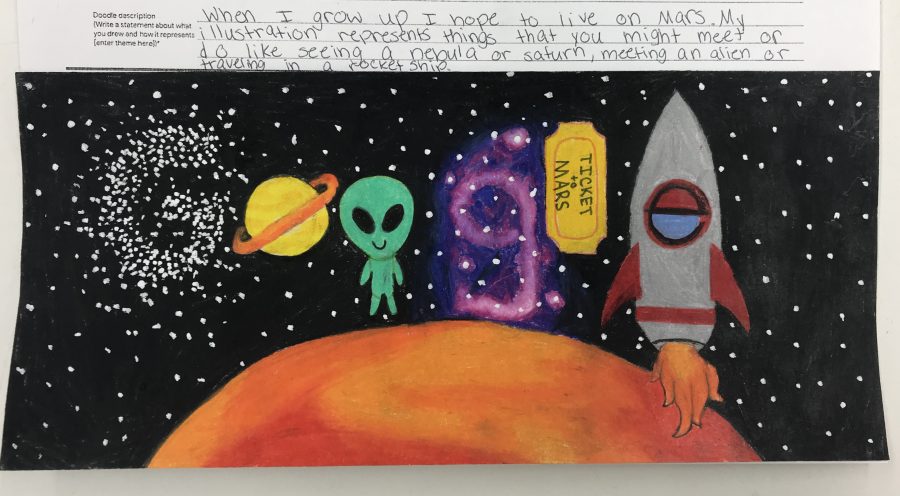 Doodle description
(Write a statement about what
you drew and how it represents
[enter theme here])*
When I grow up I hope to live on Mars. My
illustration represents things that you might meet or
do like seeing a nebula or saturn, meeting an alien or
traveling in a rocket ship.
TICKET
to
MARS